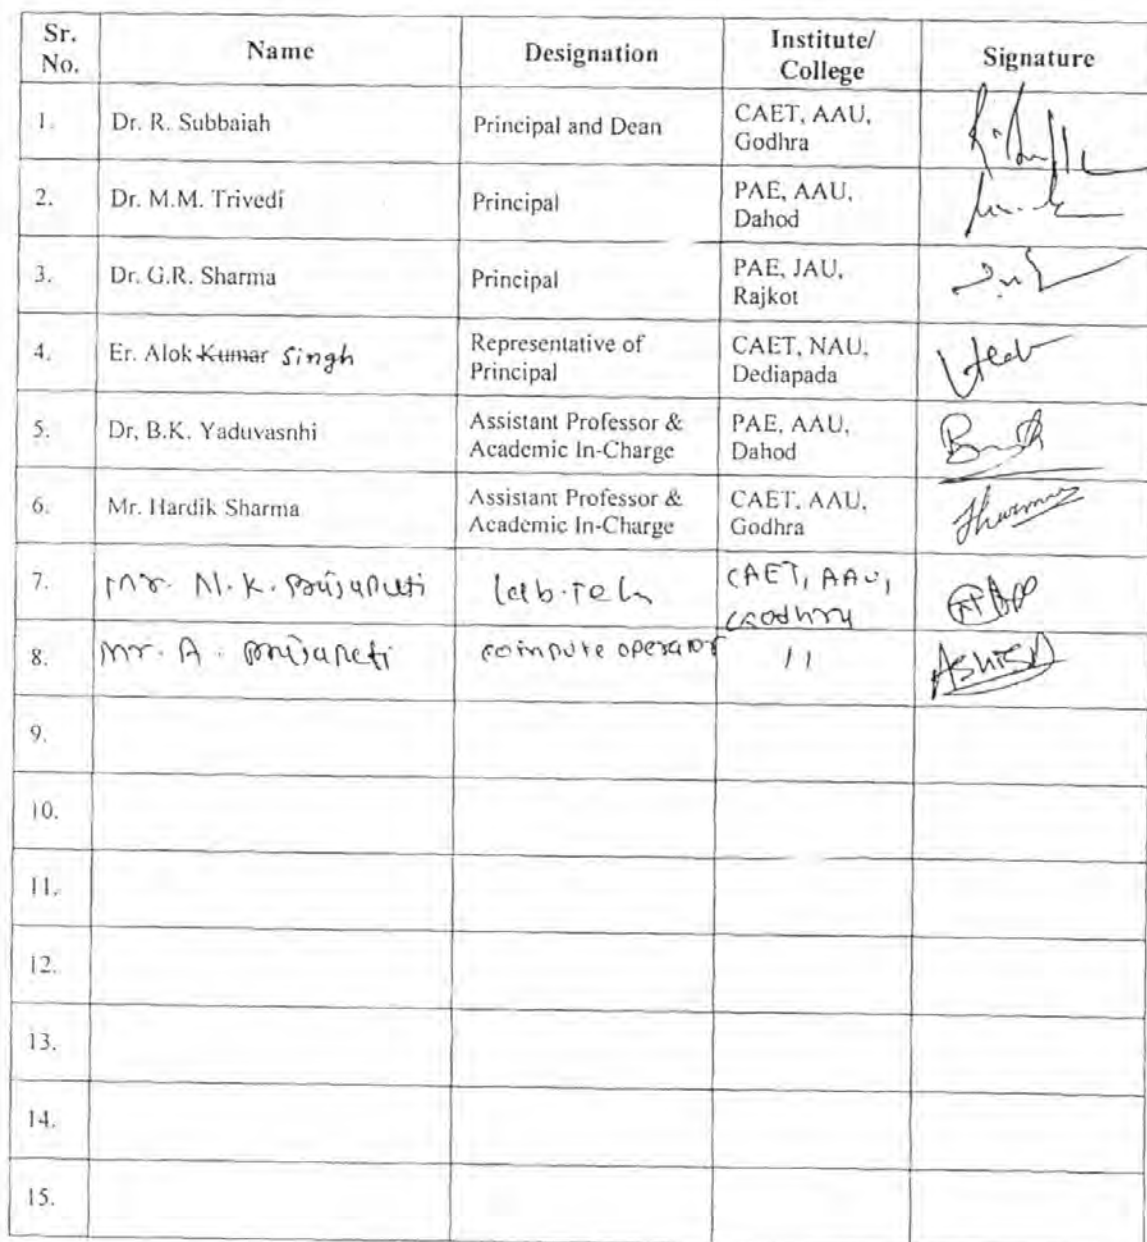 Sr. No. Name Designation Institute/ College Signature
1. Dr. R. Subbaiah Principal and Dean CAET, AAU, Godhra
2. Dr. M.M. Trivedi Principal PAE, AAU, Dahod
3. Dr. G.R. Sharma Principal PAE, JAU, Rajkot
4. Er. Alok Kumar Singh Representative of Principal CAET, NAU, Dediapada
5. Dr. B.K. Yaduvasnhi Assistant Professor & Academic In-Charge PAE, AAU, Dahod
6. Mr. Hardik Sharma Assistant Professor & Academic In-Charge CAET, AAU, Godhra
7. Mr. N.K. Prajapati lab.Tech CAET, AAU, Godhra
8. Mr. A. Prajapati compute operator 11 ASHISH
9.
10.
11.
12.
13.
14.
15.